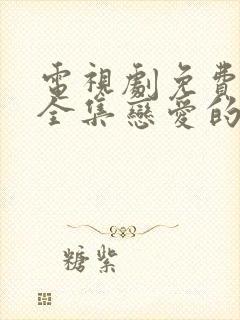 電視劇免費
全集戀愛的
糖紫